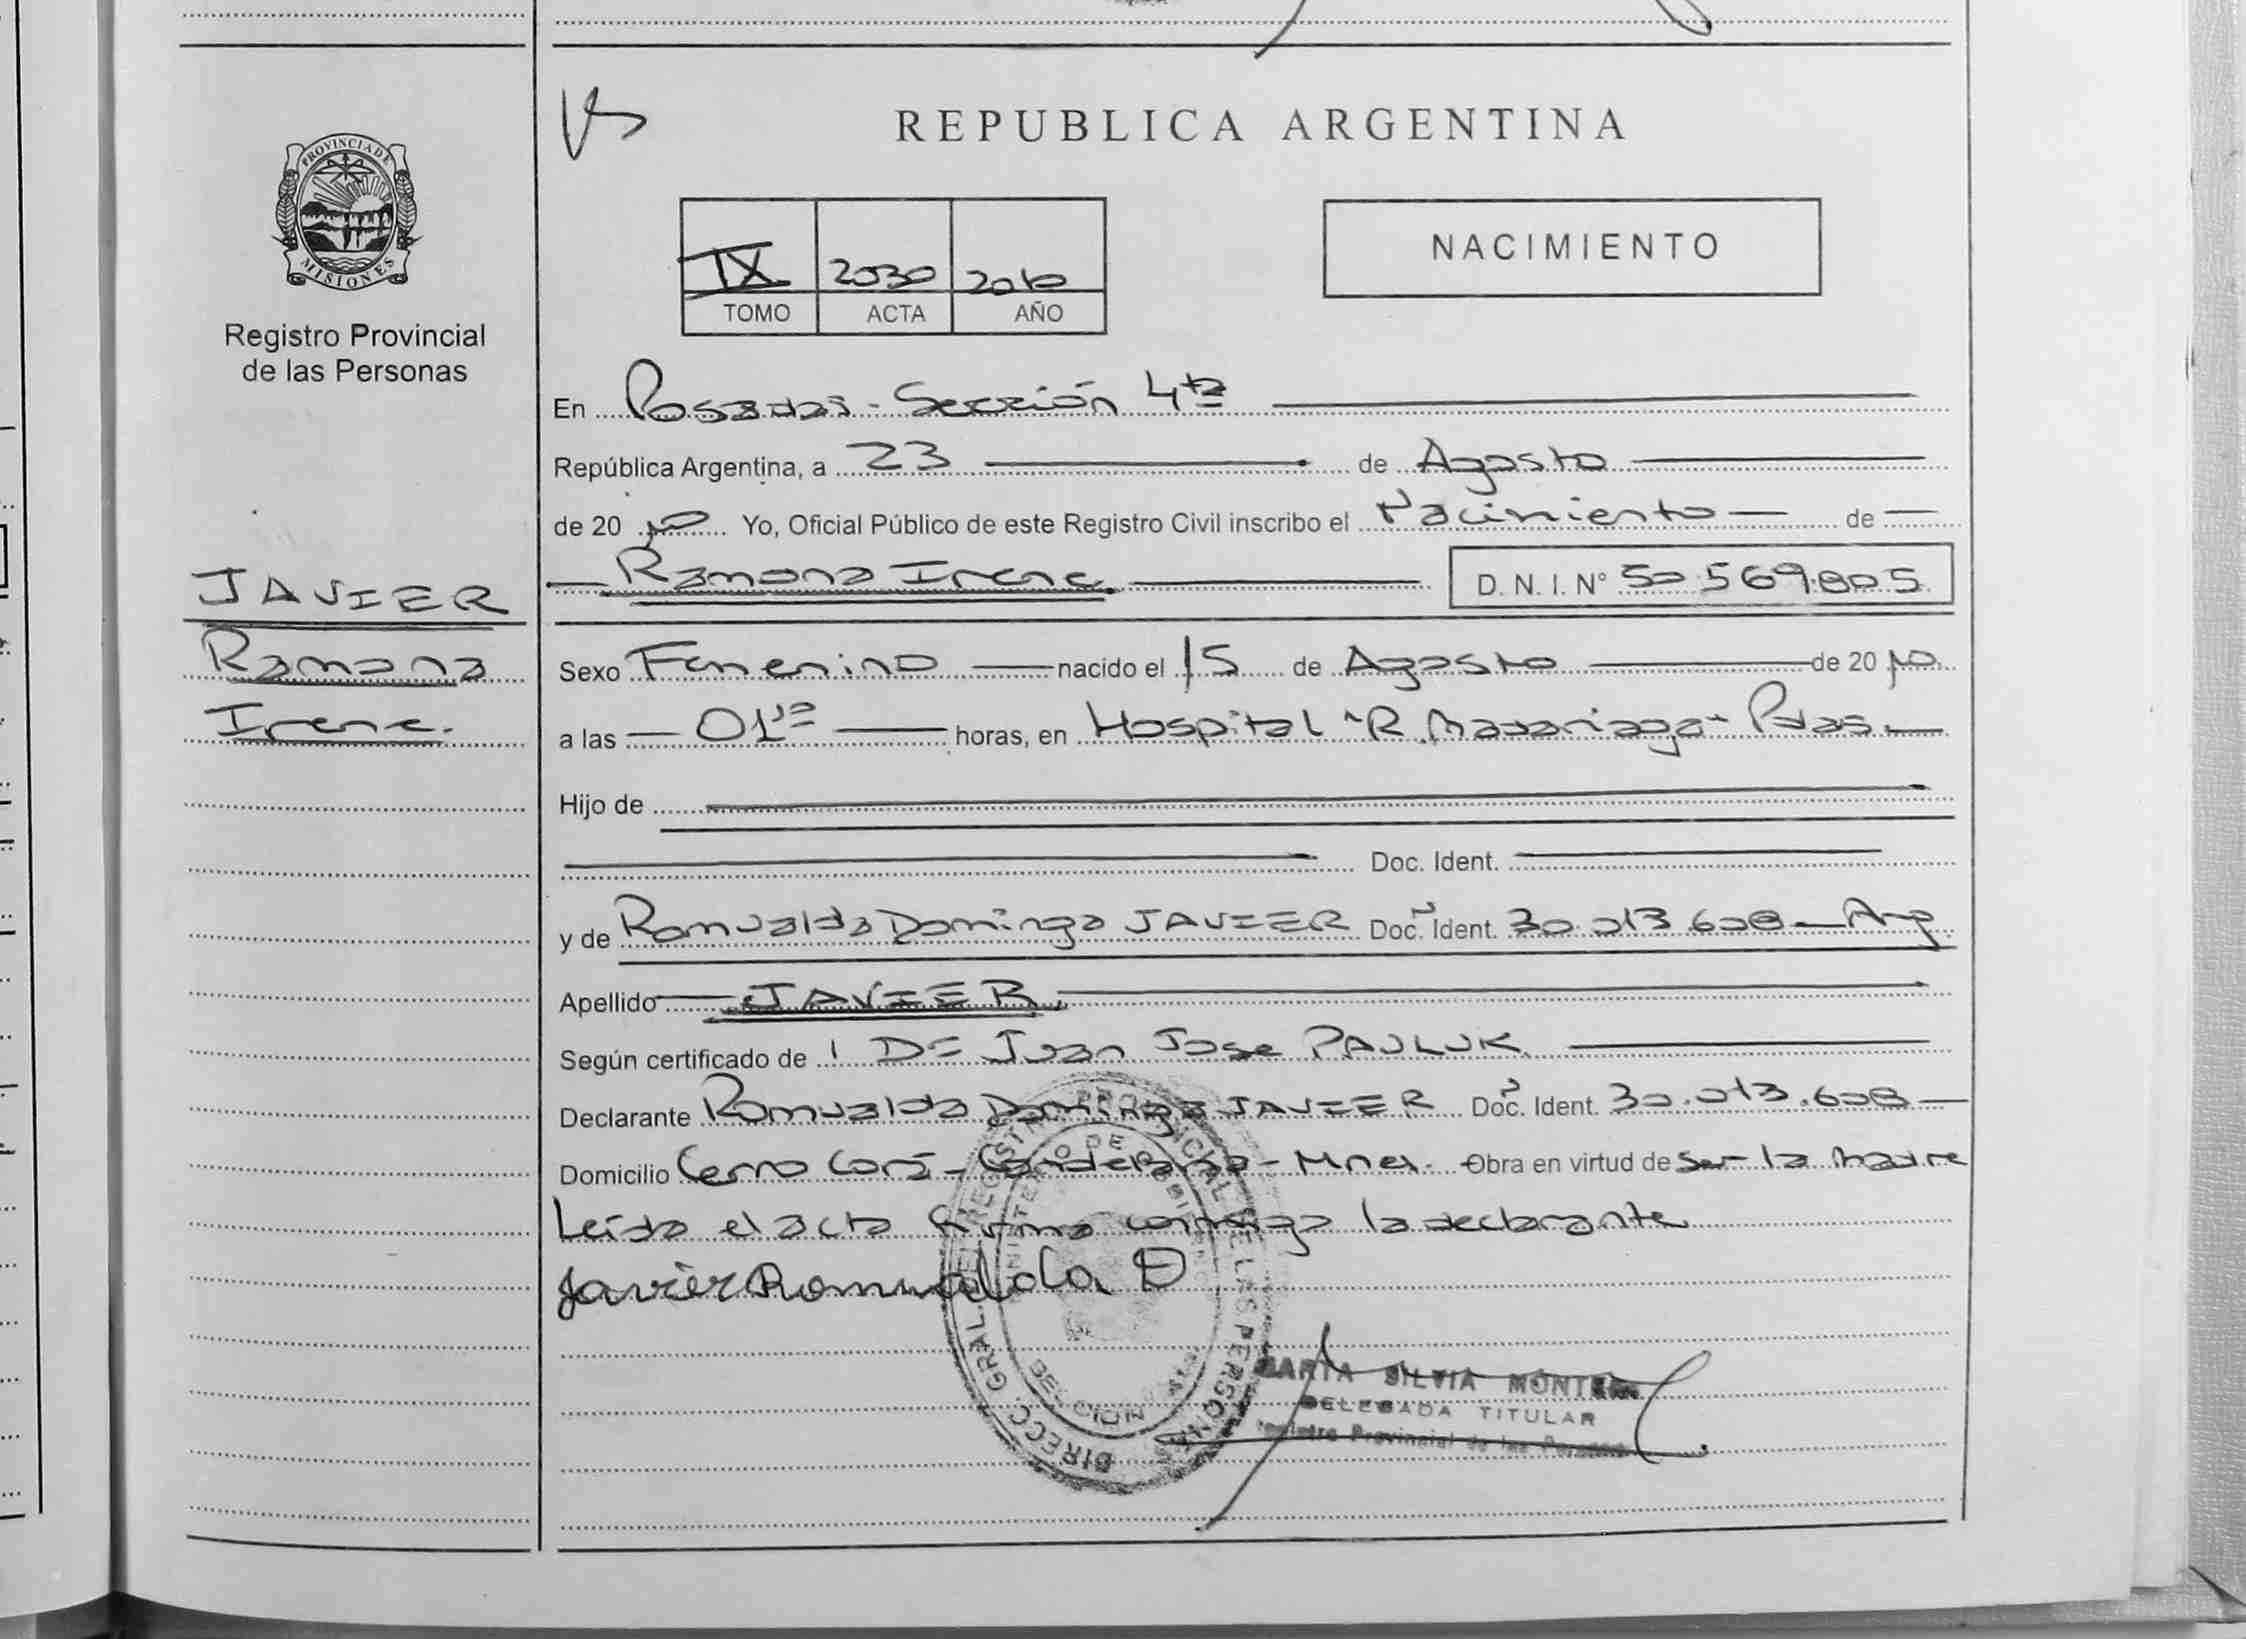 REPUBLICA ARGENTINA
PROVINCIA DE MISIONES
Registro Provincial
de las Personas
IX 2030 2010
TOMO ACTA AÑO
NACIMIENTO
En Posadas - Sección 4ta
República Argentina, a 23 de Agosto
de 20 10 Yo, Oficial Público de este Registro Civil inscribo el Nacimiento de
Ramona Irene D. N. I. N° 50.569.805
JAVIER
Ramona
Irene.
Sexo Femenino nacido el 15 de Agosto de 20 10
a las 01 horas, en Hospital "R. Madariaga" Pdas
Hijo de
Doc. Ident.
y de Romualda Dominga JAVIER Doc. Ident. 30.013.608 - Arg.
Apellido JAVIER
Según certificado de Dr Juan Jose PAULUK
Declarante Romualda Dominga JAVIER Doc. Ident. 30.013.608
Domicilio Cerro Corá - Candelaria - Mnes. Obra en virtud de ser la madre
Leída el acta firma conmigo la declarante
Javier Romualda D
DIRECC. GRAL. DEL REGISTRO PROVINCIAL DE LAS PERSONAS
MINISTERIO DE GOBIERNO
SILVIA
DELEGADA TITULAR
Registro Provincial de las Personas